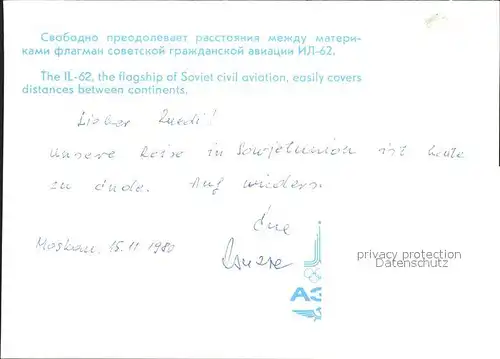 Свободно преодолевает расстояния между матери-
ками флагман советской гражданской авиации ИЛ-62.
The IL-62, the flagship of Soviet civil aviation, easily covers
distances between continents.
Lieber Ruedi!
Unsere Reise in Sowjetunion ist heute
zu Ende. Auf wieders.
Moskau, 15.11 1980
privacy protection
Datenschutz
АЭ